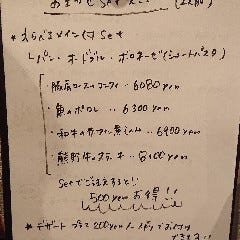 おまかせ Set メニュー (2人前)
* えらべるメイン付 Set
パン・オードブル・ボロネーゼ(ショートパスタ)
・豚肩ロースのコンフィ ‥ 6080yen
・魚のポワレ ‥ 6300yen
・和牛の赤ワイン煮込み ‥ 6900yen
・熊野牛のステーキ ‥ 8100yen
Setでご注文すると!!
500yen お得!!
* デザート プラス 200yen / 1人